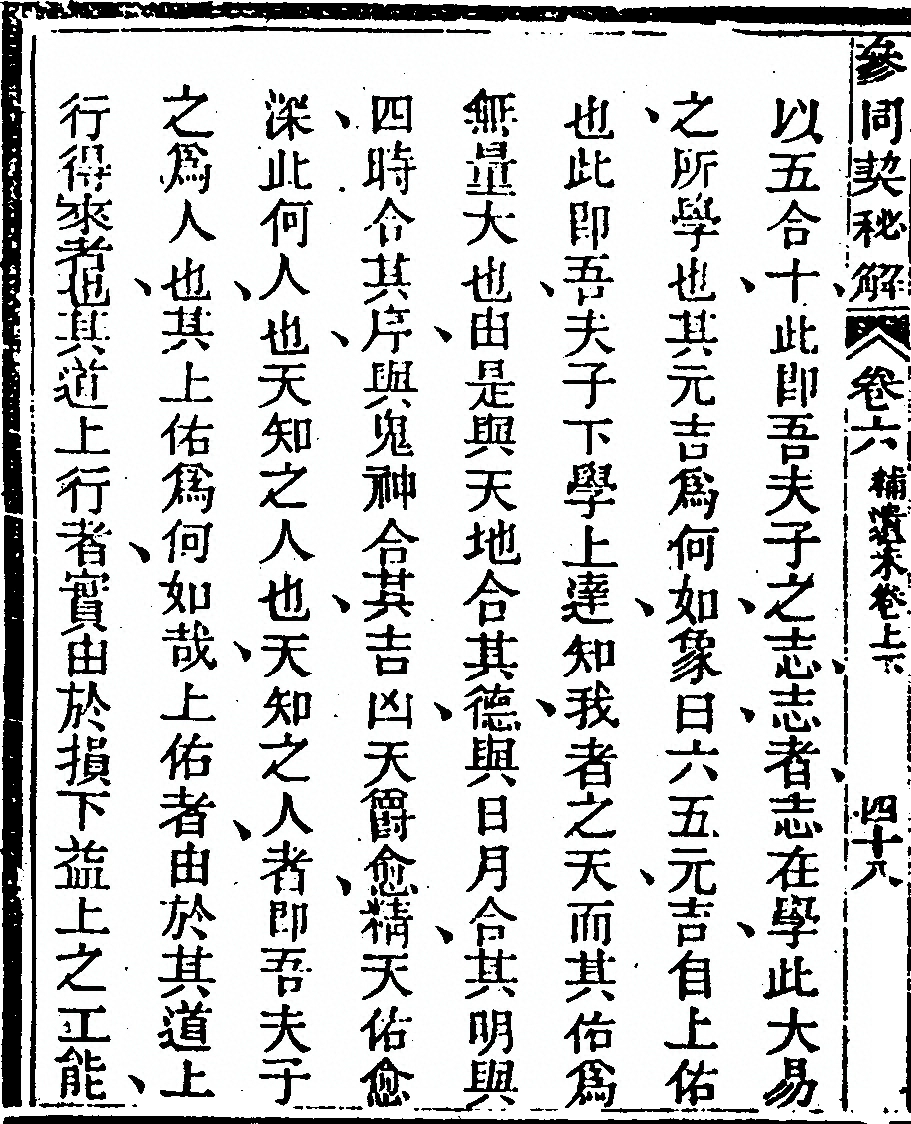 參同契秘解 卷六 補遺末卷上下 四十八
以五合十、此即吾夫子之志、志者、志在學此大易
之所學也、其元吉爲何如、象曰、六五元吉、自上佑
也、此即吾夫子下學上達、知我者之天、而其佑爲
無量大也、由是與天地合其德、與日月合其明、與
四時合其序、與鬼神合其吉凶、天爵愈精、天佑愈
深、此何人也、天知之人也、天知之人者、即吾夫子
之爲人也、其上佑爲何如哉、上佑者、由於其道上
行得來者也、其道上行者、實由於損下益上之工能、